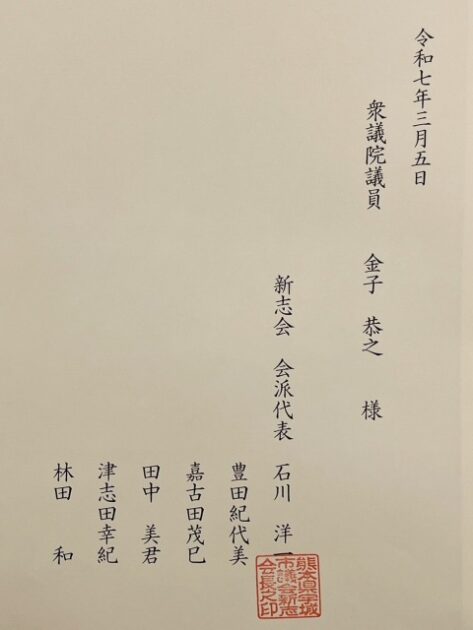 令和七年三月五日
衆議院議員　金子　恭之　様
新志会　会派代表　石川　洋一
豊田紀代美
嘉古田茂巳
田中　美君
津志田幸紀
林田　和
熊本県宇城
市議会新志
会長之印